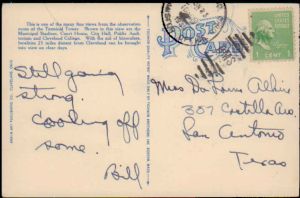 This is one of the many fine views from the observation
room of the Terminal Tower. Shown in the view are the
Municipal Stadium, Court House, City Hall, Public Audi-
torium and Cleveland College. With the aid of binoculars,
locations 25 miles distant from Cleveland can be brought
into view on clear days.
Still going
strong.
Cooling off
some.
Bill
POST
CARD
1 CENT
Miss Da Laura
307 Castillo Ave.
San Antonio
Texas